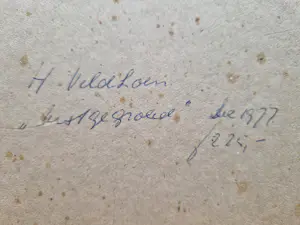 H. Veldhoen
"vastgegroeid" dec 1977
f 225,-